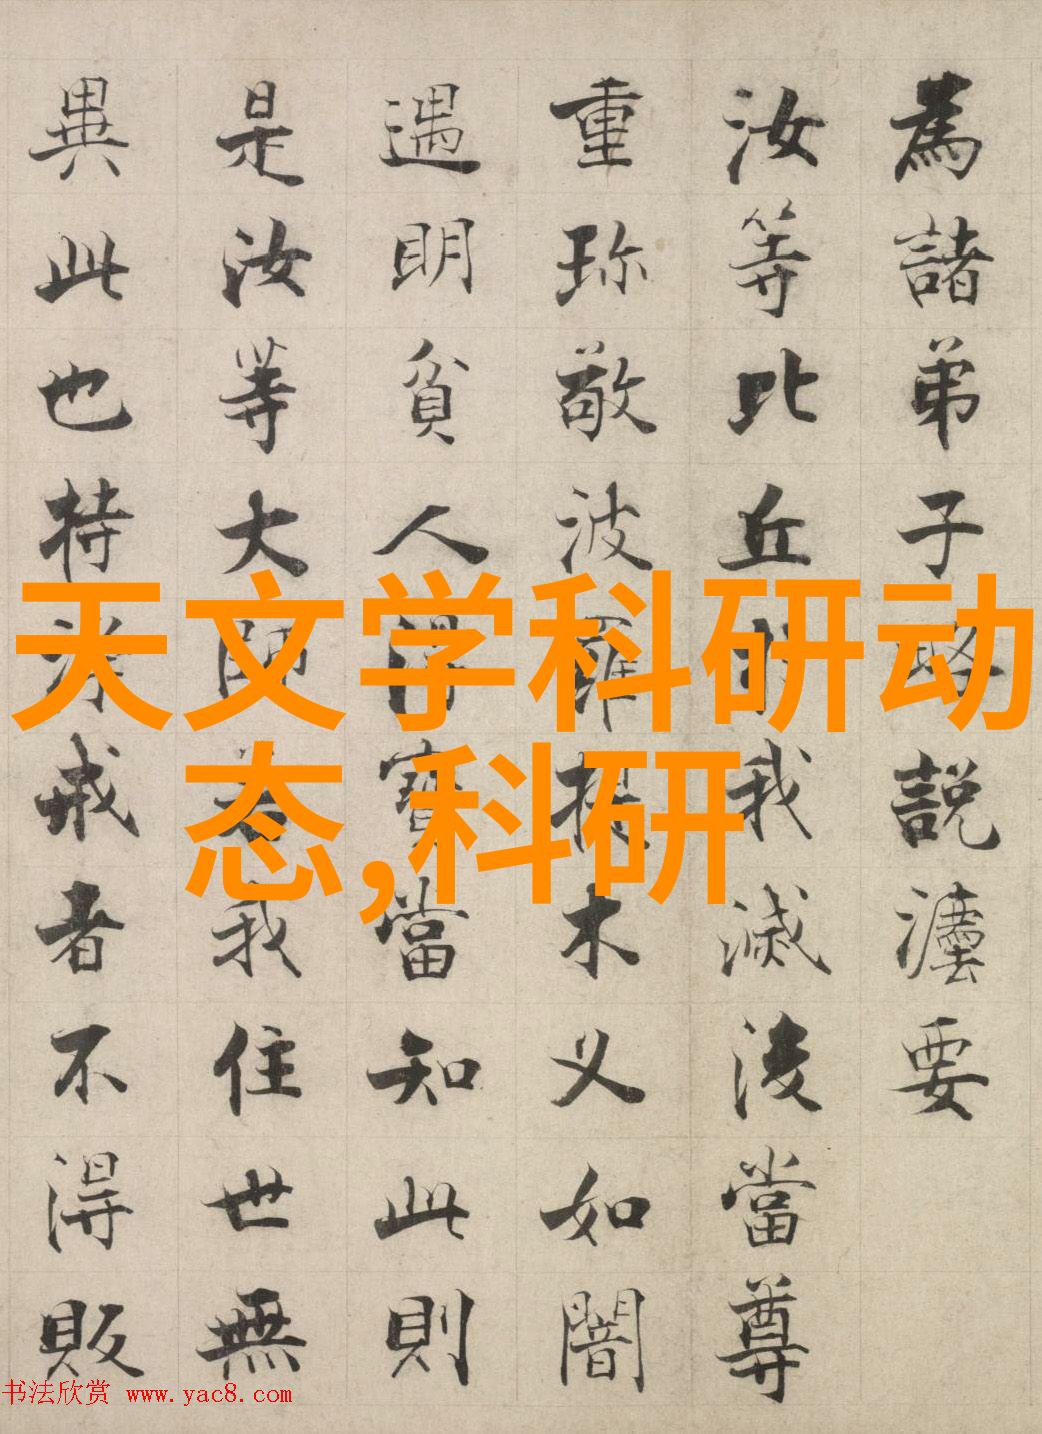 為諸弟子略說法要
汝等比丘於我滅後當尊
重珎敬波羅提木叉如闇
遇明貧人得寶當知此則
是汝等大師若我住世無
異此也持淨戒者不得販
天文学科研动
态,科研
书法欣赏 www.yac8.com